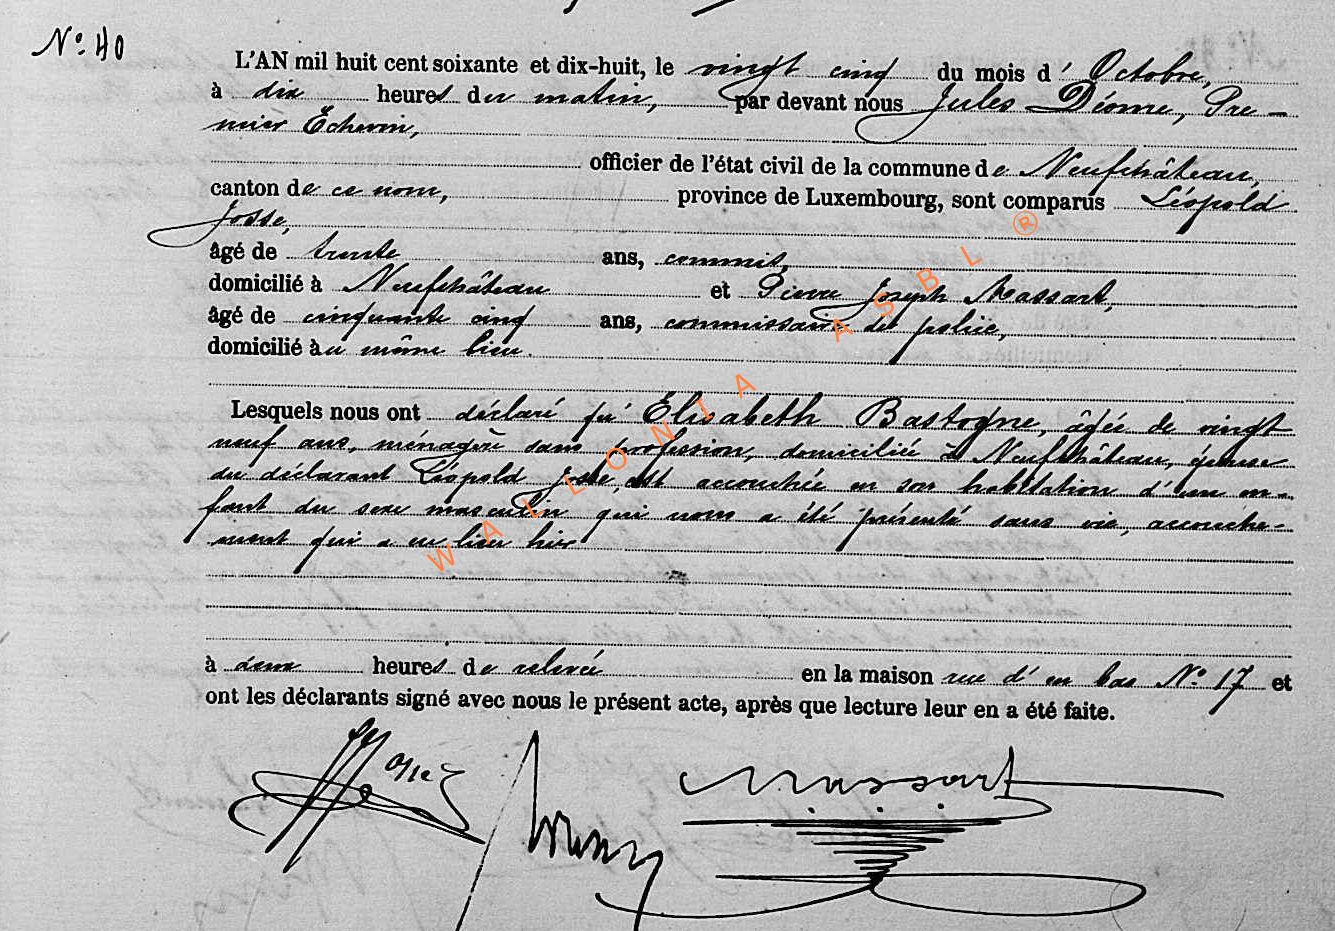 N° 40
L'AN mil huit cent soixante et dix-huit, le vingt cinq du mois d' Octobre,
à dix heures du matin, par devant nous Jules Déome, Pre-
mier Échevin,
officier de l'état civil de la commune de Neufchâteau,
canton de ce nom, province de Luxembourg, sont comparus Léopold
Josse,
âgé de trente ans, commis,
domicilié à Neufchâteau et Pierre Joseph Massart,
âgé de cinquante cinq ans, commissaire de police,
domicilié au même lieu.
Lesquels nous ont déclaré qu' Élisabeth Bastogne, âgée de vingt
neuf ans, ménagère sans profession, domiciliée à Neufchâteau, épouse
du déclarant Léopold Josse, est accouchée en son habitation d'un en-
fant du sexe masculin qui nous a été présenté sans vie, accouche-
ment qui a eu lieu hier
à deux heures de relevée en la maison rue d'en bas N° 17 et
ont les déclarants signé avec nous le présent acte, après que lecture leur en a été faite.
Josse
Massart
WALLONIA ASBL ®